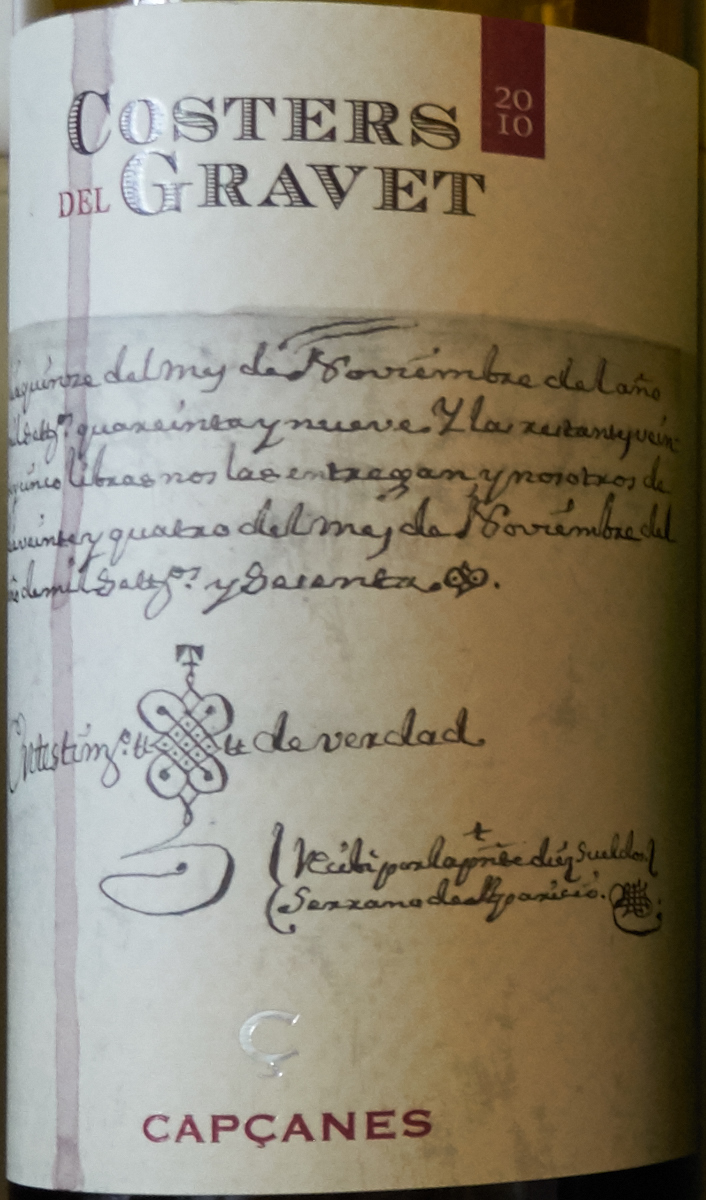 COSTERS
DEL GRAVET
20
10
quinze del mes de Noviembre del año
quareinta y nueve. Y las restantes y vein-
libras nos las entregan y nosotros de
veinte y quatro del mes de Noviembre del
de mil Setz.os y Setenta.
En testim.o de verdad
Recibi por la pnte diez Sueldos
Serrano de Aparicio.
Ç
CAPÇANES